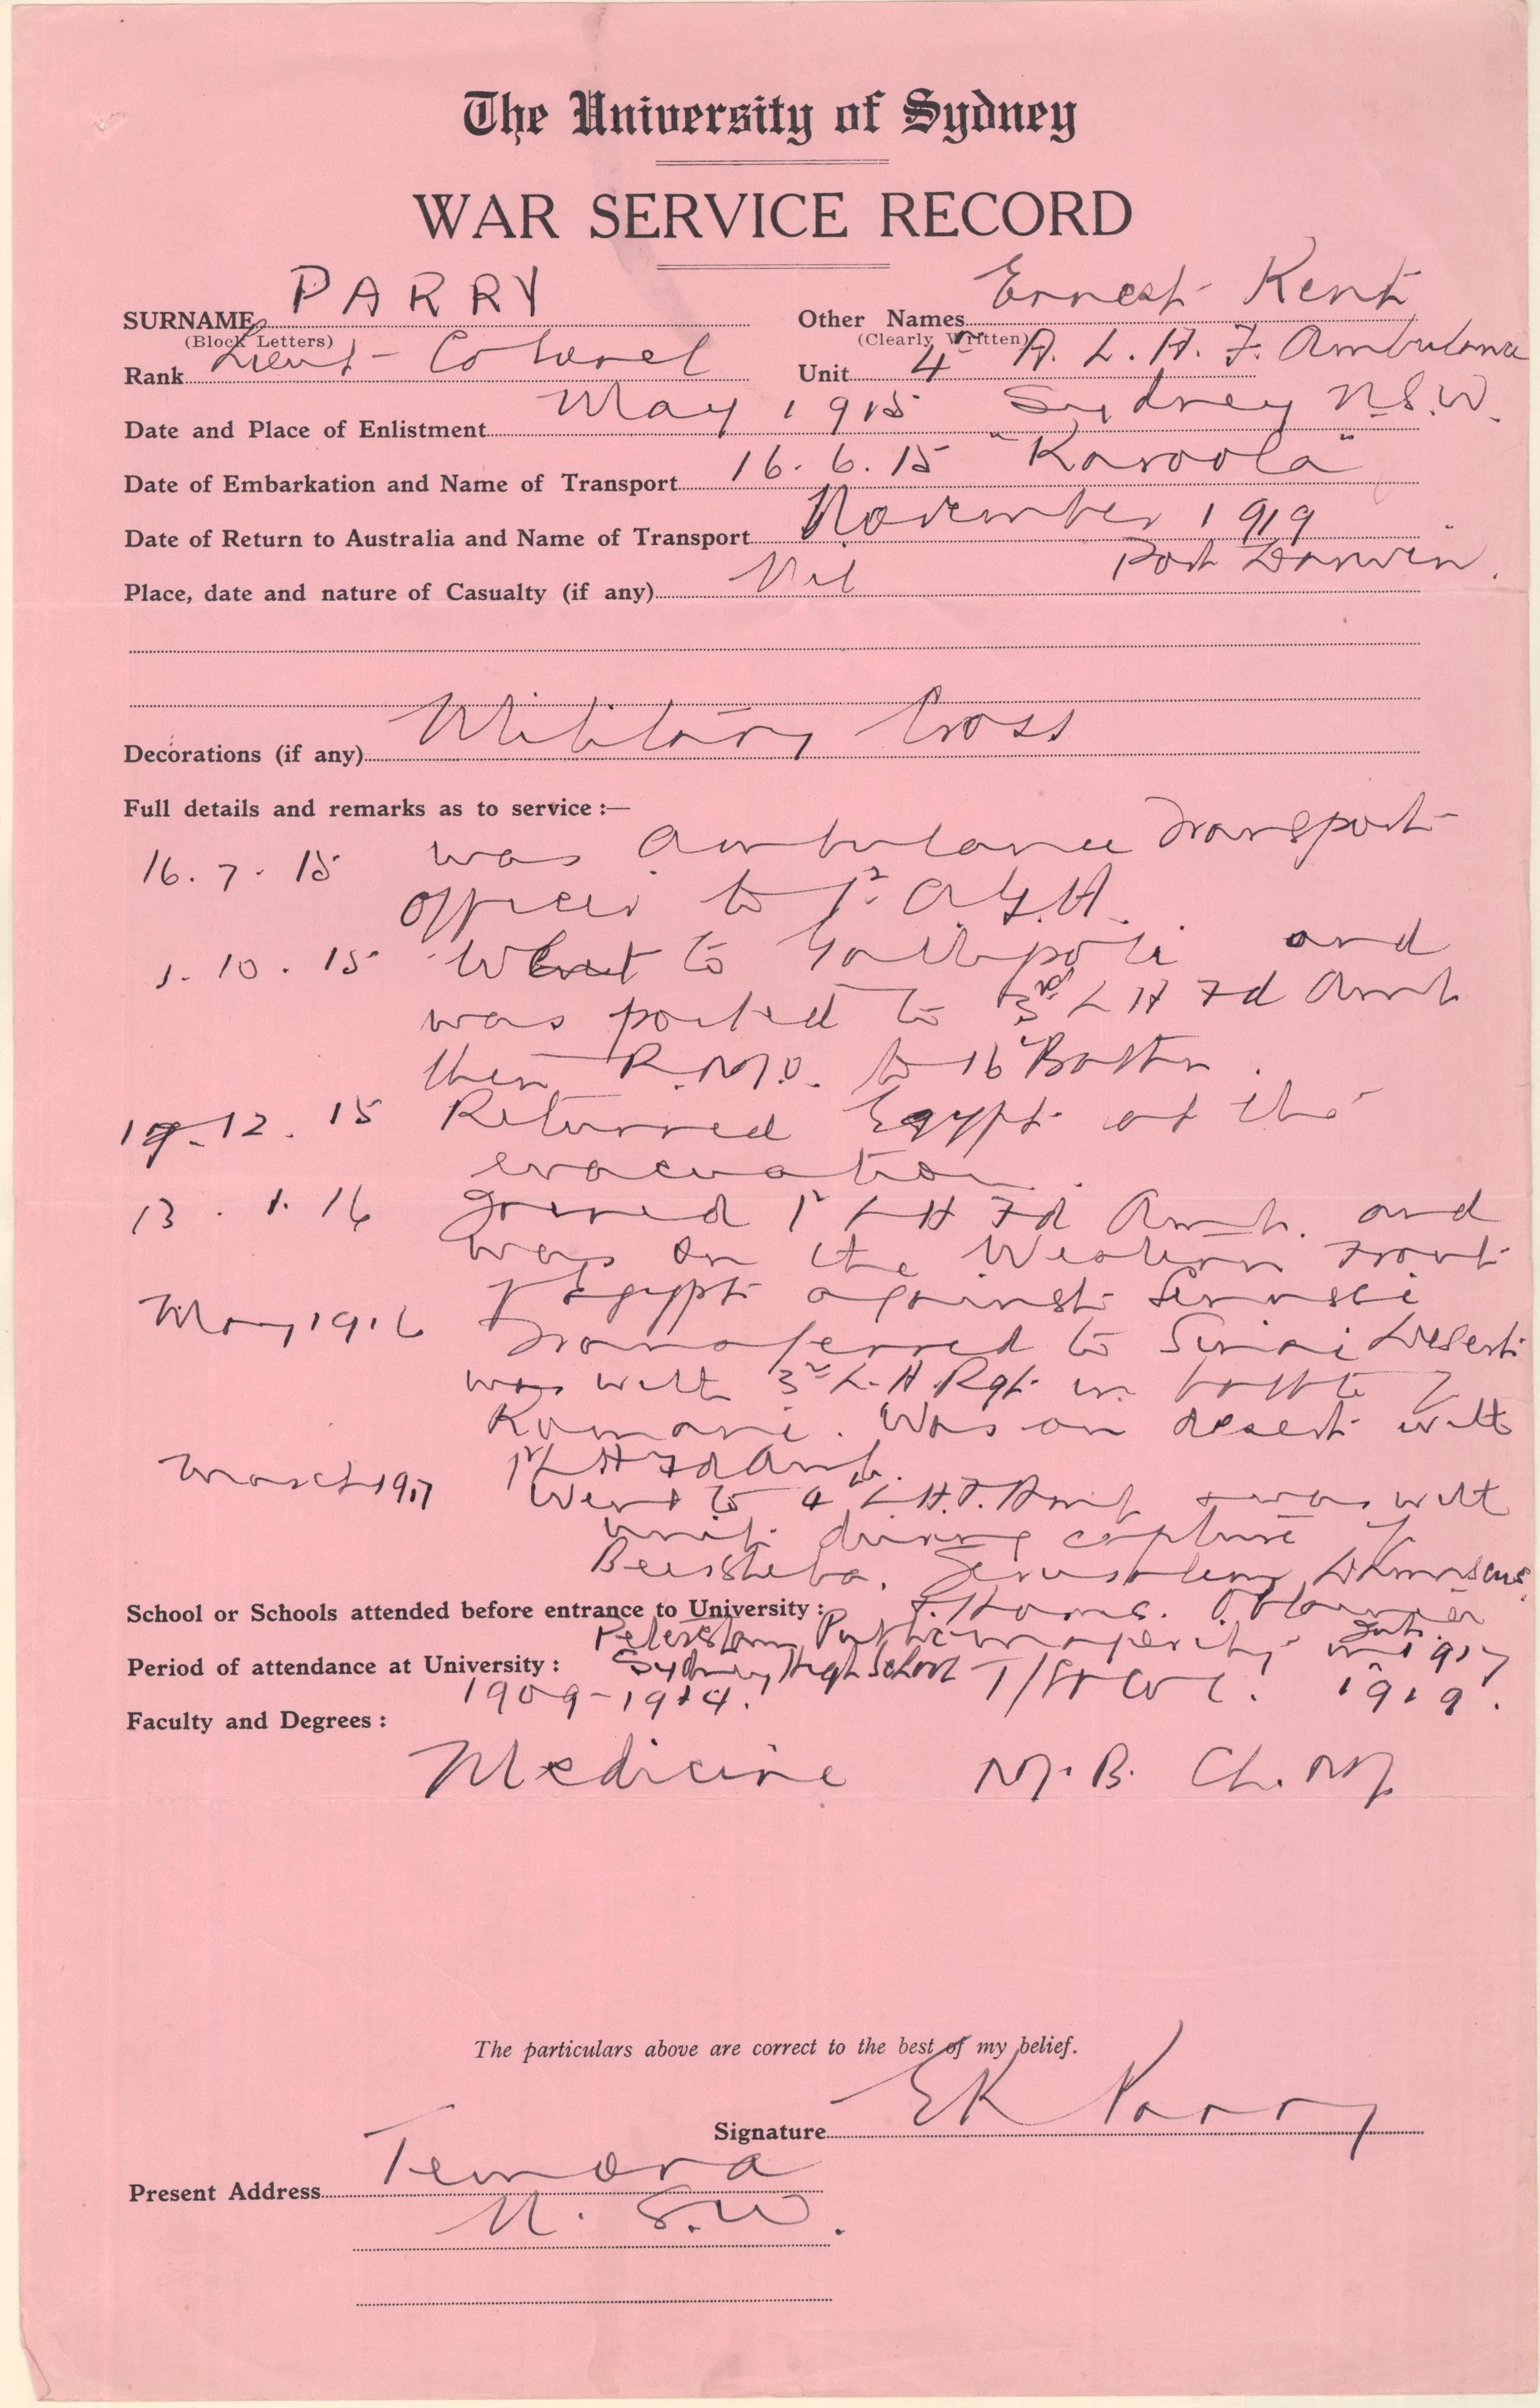 The University of Sydney
WAR SERVICE RECORD
SURNAME PARRY Other Names Ernest Kent
(Block Letters) (Clearly Written)
Rank Lieut- Colonel Unit 4th A. L. H. F. Ambulance
Date and Place of Enlistment May 1915 Sydney N.S.W.
Date of Embarkation and Name of Transport 16. 6. 15 "Karoola"
Date of Return to Australia and Name of Transport November 1919
Port Darwin.
Place, date and nature of Casualty (if any) Nil
Decorations (if any) Military Cross
Full details and remarks as to service :—
16. 7. 15 was ambulance Transport
officer to 1st A.G.H.
1. 10. 15 Went to Gallipoli and
was posted to 3rd L H Fd Amb
then R.M.O. to 16 Battn.
19-12. 15 Returned Egypt at the
evacuation.
13. 1. 16 Joined 1st L H Fd Amb. and
was on the Western Front
of Egypt against Senussi
May 1916 Transferred to Sinai Desert
was with 3rd L.H Rgt in battle of
Romani. Was on desert with
1st L H Fd Amb.
March 1917 Went to 4th L.H.F. Amb & was with
unit during capture of
Beersheba, Jerusalem, Damascus,
School or Schools attended before entrance to University :
Petersham Public majority in 1917
Period of attendance at University : Sydney High School T/Lt Col. 1919.
1909-1914.
Faculty and Degrees :
Medicine M.B. Ch.M
The particulars above are correct to the best of my belief.
Signature EK Parry
Present Address Temora
N. S.W.